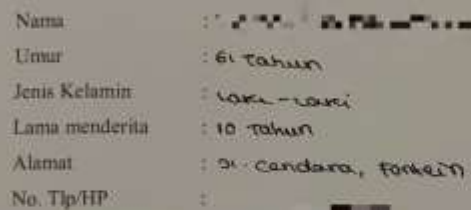 Nama :
Umur : 61 Tahun
Jenis Kelamin : Laki-Laki
Lama menderita : 10 Tahun
Alamat : Jl. Cendara, Fontein
No. Tlp/HP :